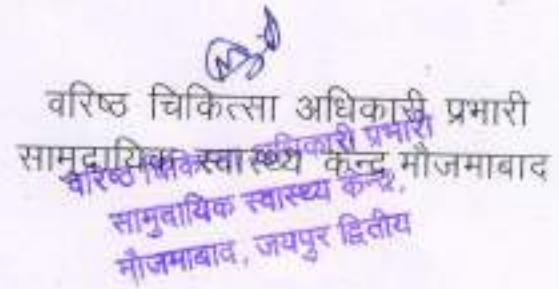 वरिष्ठ चिकित्सा अधिकारी प्रभारी
सामुदायिक स्वास्थ्य केन्द्र मौजमाबाद
वरिष्ठ चिकित्सा अधिकारी प्रभारी
सामुदायिक स्वास्थ्य केन्द्र,
मौजमाबाद, जयपुर द्वितीय